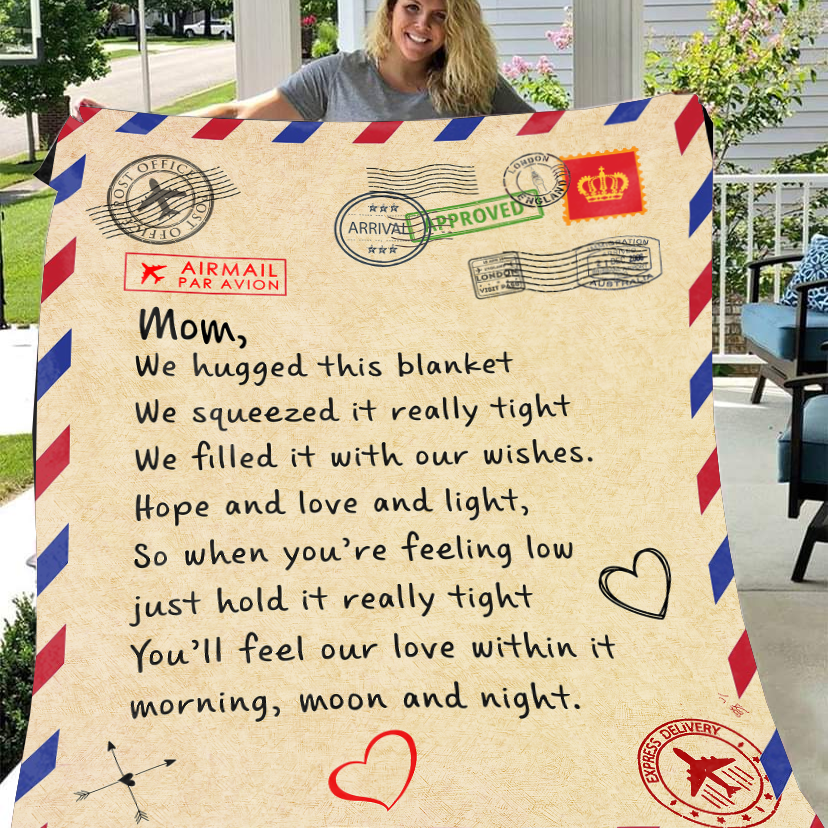 POST OFFICE POST OFFICE
LONDON
ENGLAND
ARRIVAL
APPROVED
LONDON
AUSTRALIA
AIRMAIL
PAR AVION
Mom,
We hugged this blanket
We squeezed it really tight
We filled it with our wishes.
Hope and love and light,
So when you're feeling low
just hold it really tight
You'll feel our love within it
morning, moon and night.
EXPRESS DELIVERY